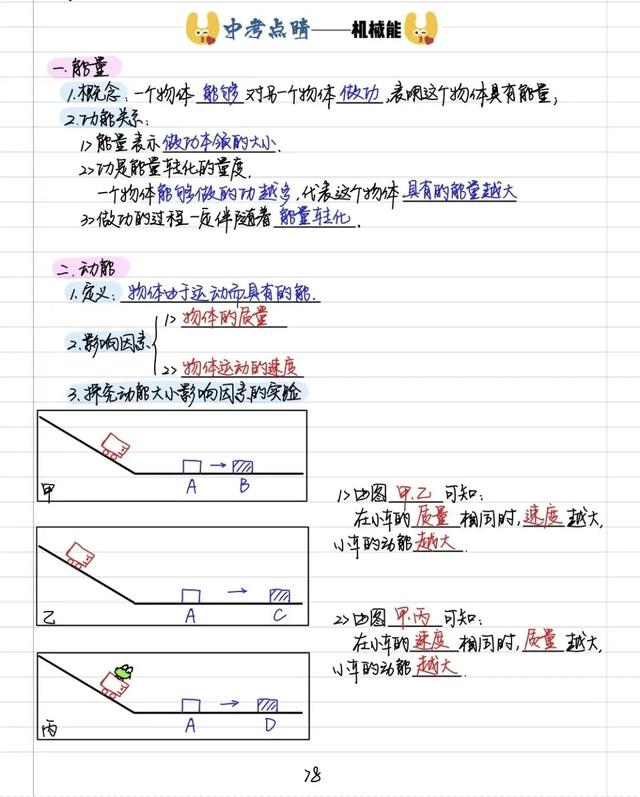 中考点睛——机械能
一.能量
1.概念:一个物体 能够 对另一个物体 做功,表明这个物体具有能量;
2.功能关系:
1>能量表示做功本领的大小.
2>功是能量转化的量度.
一个物体能够做的功越多,代表这个物体具有的能量越大
3>做功的过程一定伴随着 能量转化.
二.动能
1.定义:物体由于运动而具有的能.
2.影响因素
1>物体的质量
2>物体运动的速度
3.探究动能大小影响因素的实验
甲 A B
1>由图 甲.乙 可知:
在小车的 质量 相同时,速度 越大,
小车的动能 越大.
乙 A C
2>由图 甲.丙 可知:
在小车的 速度 相同时,质量 越大,
小车的动能 越大.
丙 A D
78